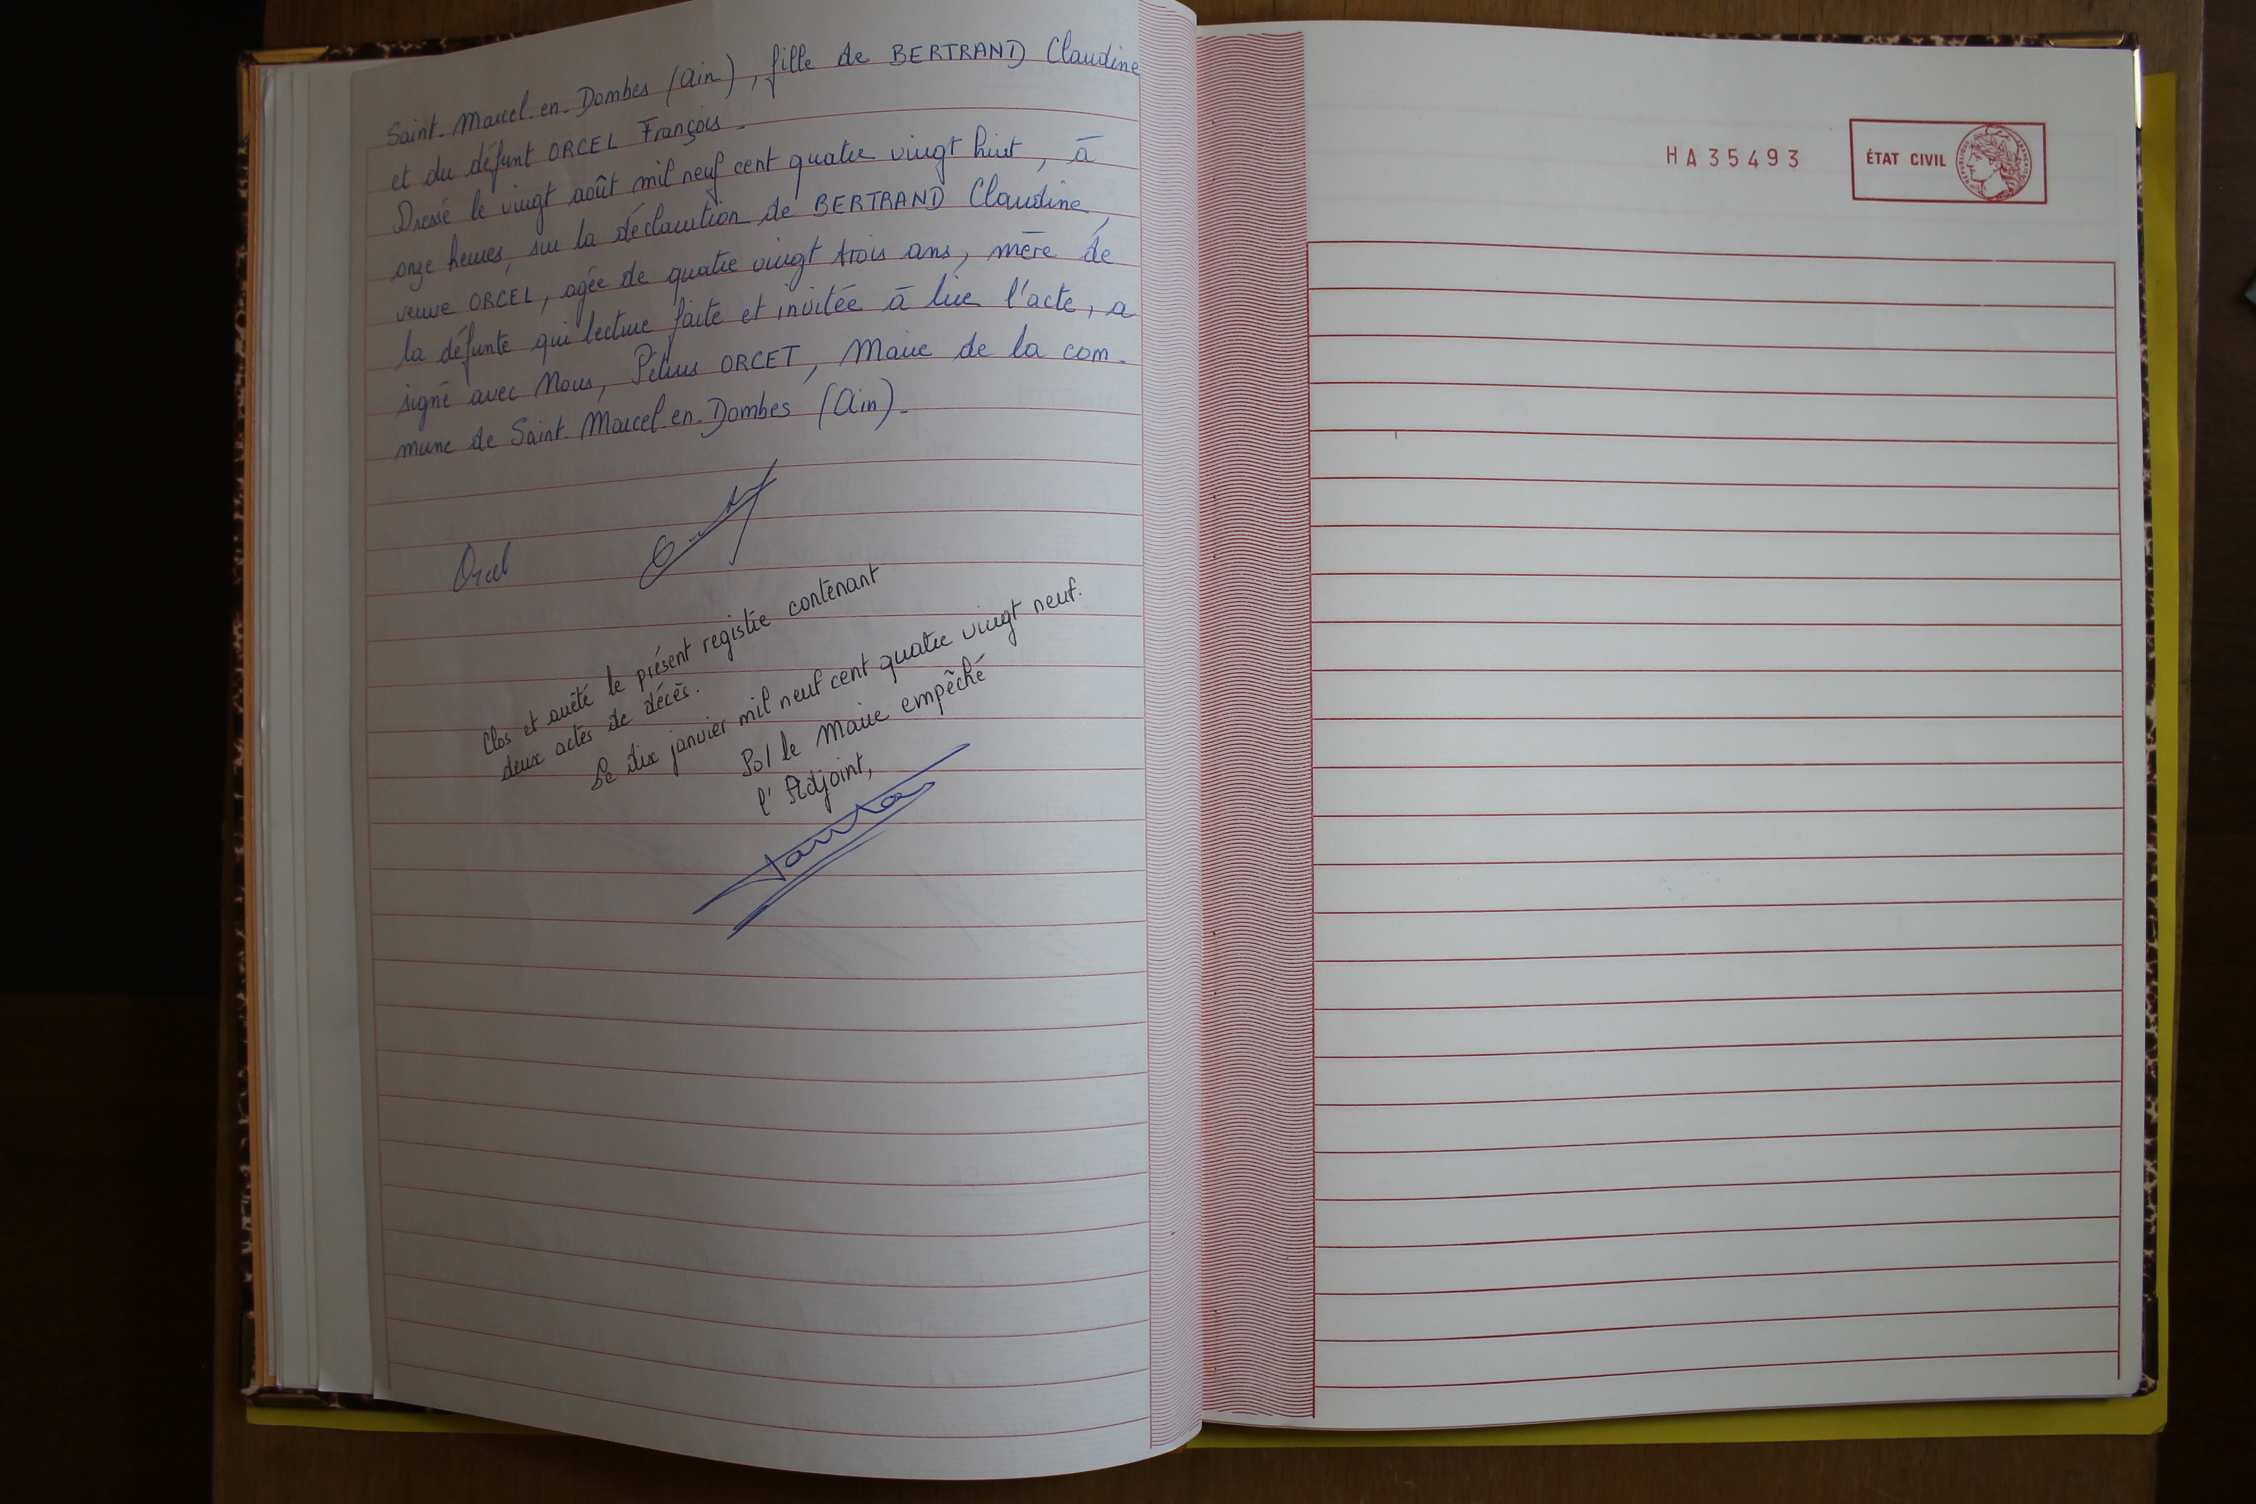 Saint-Marcel-en-Dombes (Ain), fille de BERTRAND Claudine
et du défunt ORCEL François.
Dressé le vingt août mil neuf cent quatre vingt huit, à
onze heures, sur la déclaration de BERTRAND Claudine,
veuve ORCEL, agée de quatre vingt trois ans, mère de
la défunte qui lecture faite et invitée à lire l'acte, a
signé avec Nous, Pétrus ORCET, Maire de la com-
mune de Saint-Marcel-en-Dombes (Ain).
Orcel
Clos et arrêté le présent registre contenant
deux actes de décès.
Le dix janvier mil neuf cent quatre vingt neuf.
Po/ le Maire empêché
l'Adjoint,
HA35493
ÉTAT CIVIL